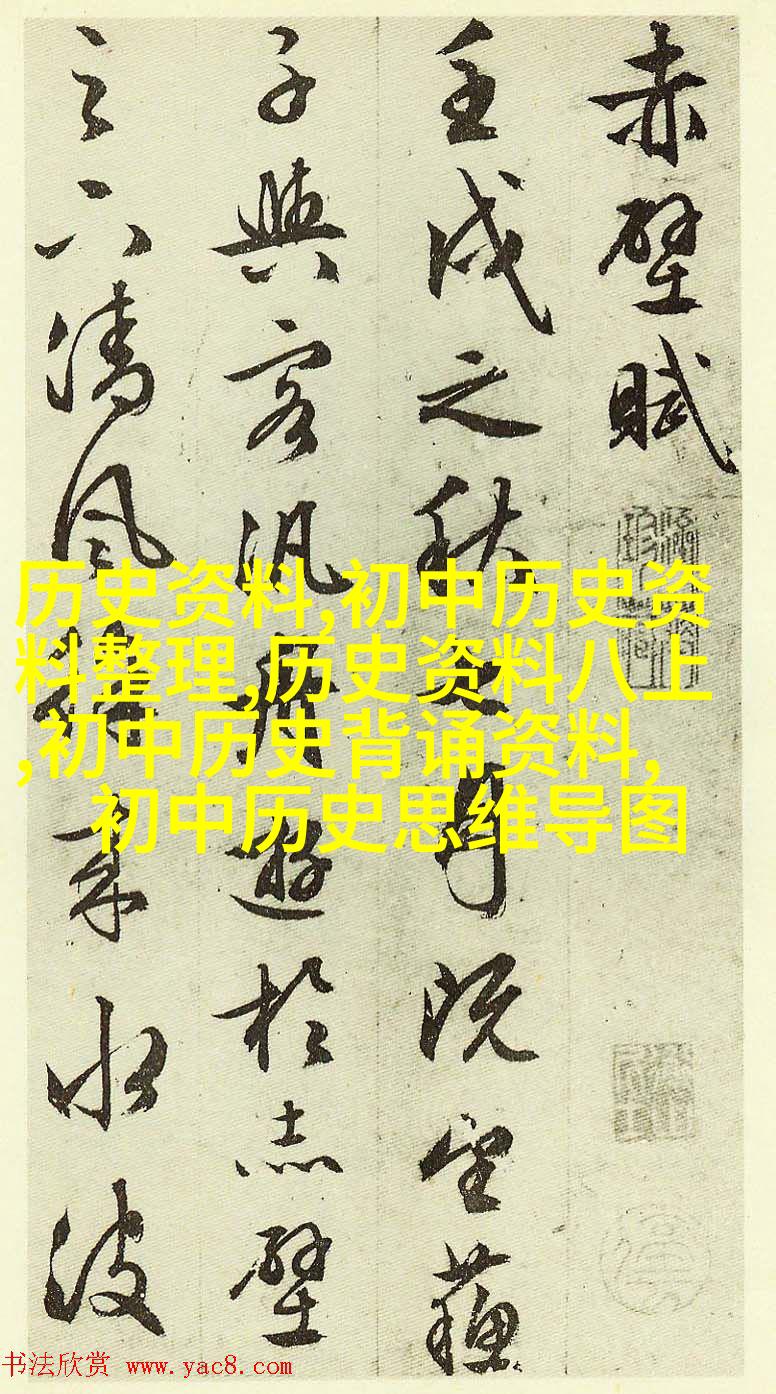 赤壁賦
壬戌之秋七月既望蘇
子與客汎舟遊於赤壁
之下清風徐来水波
历史资料,初中历史资
料整理,历史资料八上
,初中历史背诵资料,
初中历史思维导图
书法欣赏 www.yac8.com